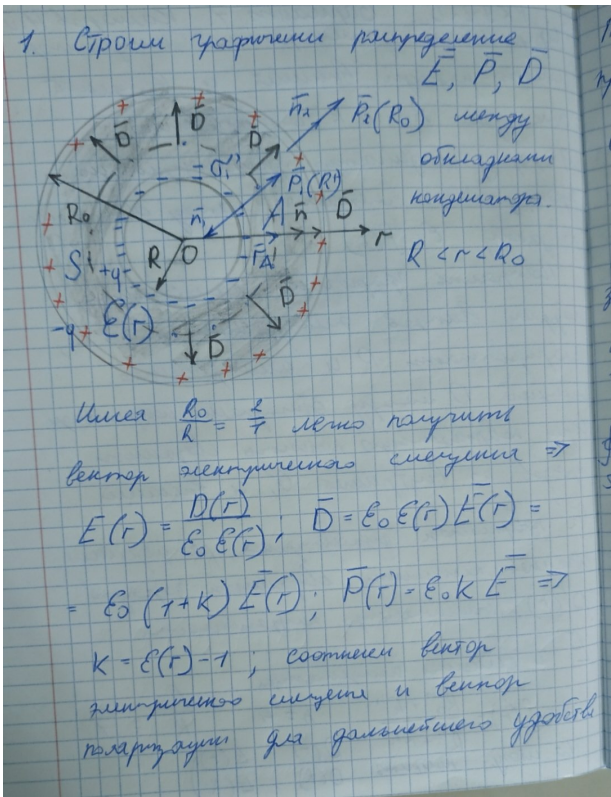 1. Строим графически распределение
E̅, P̅, D̅
n̅₂ P̅₂(R₀) между
обкладками
конденсатора.
R < r < R₀
D̅ D̅ D̅
σ₁' P̅₁(R)
n̅₁ A n̅ D̅ r
R₀ R O r̅A
S +q
-q ε(r) D̅ D̅
Имея R₀/R = 2/1 легко получить
вектор электрического смещения =>
E̅(r) = D(r)/ε₀ε(r); D̅ = ε₀ε(r)E̅(r) =
= ε₀(1+k)E̅(r); P̅(r) = ε₀kE̅ =>
k = ε(r)-1; соотнесем вектор
электрического смещения и вектор
поляризации для дальнейшего удобства